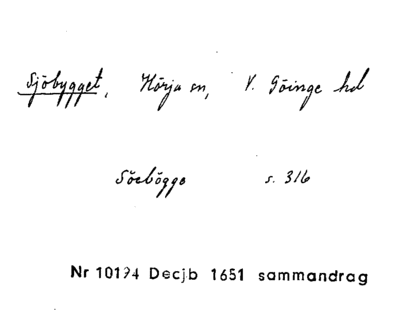 Sjöbygget, Hörja sn, V. Göinge hd
Söebögge s. 316
Nr 10194 Decjb 1651 sammandrag